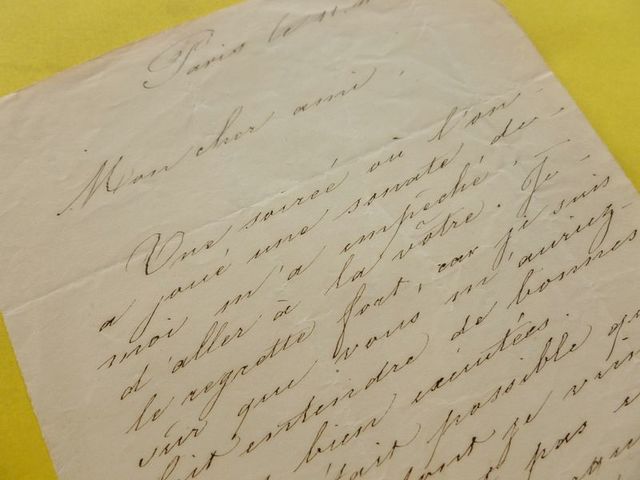 Paris le 11
Mon cher ami,
Une soireé où l'on
a joué une sonate de
moi m'a empêché,
d'aller à la vôtre. Je
le regrette fort, car je suis
sûr que vous m'auriez
fait entendre de bonnes
bien exécutées.
était possible
dont je
pas